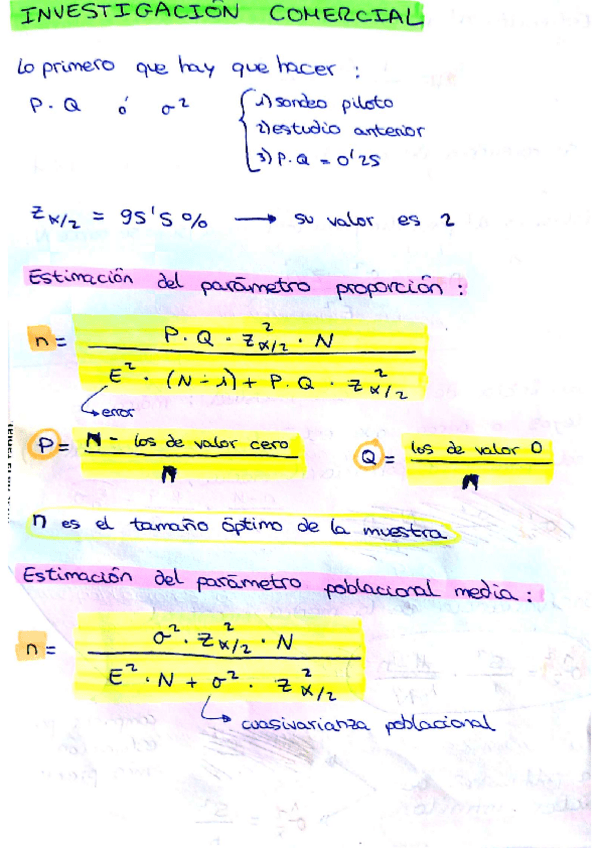 INVESTIGACIÓN COMERCIAL
Lo primero que hay que hacer :
P. Q ó σ² { 1) sondeo piloto
2) estudio anterior
3) P. Q = 0'25
Z α/2 = 95'5 % → su valor es 2
Estimación del parámetro proporción :
n = P. Q · Z²α/2 · N / E² · (N - 1) + P. Q · Z²α/2
↳ error
P = N - los de valor cero / N
Q = los de valor 0 / N
n es el tamaño óptimo de la muestra
Estimación del parámetro poblacional media :
n = σ² · Z²α/2 · N / E² · N + σ² · Z²α/2
↳ cuasivarianza poblacional